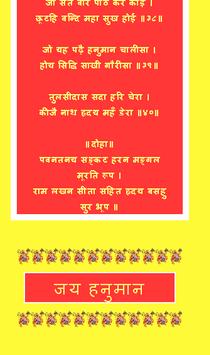 जो सत बार पाठ कर कोई ।
छूटहि बन्दि महा सुख होई ॥३८॥
जो यह पढ़ै हनुमान चालीसा ।
होय सिद्धि साखी गौरीसा ॥३९॥
तुलसीदास सदा हरि चेरा ।
कीजै नाथ हृदय महँ डेरा ॥४०॥
॥दोहा॥
पवनतनय सङ्कट हरन मङ्गल
मूरति रुप ।
राम लखन सीता सहित हृदय बसहु
सुर भूप ॥
जय हनुमान